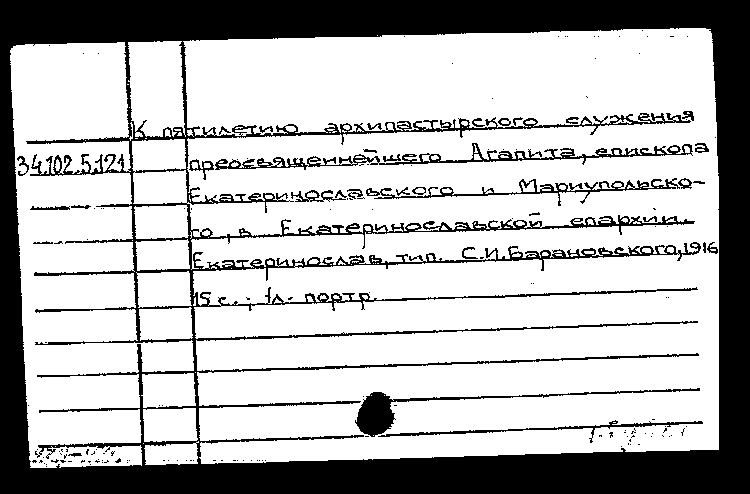 К пятилетию архипастырского служения
34.102.5.121 преосвященнейшего Агапита, епископа
Екатеринославского и Мариупольско-
го, в Екатеринославской епархии.
Екатеринослав, тип. С.И.Барановского, 1916
15 с.; 1л. портр.